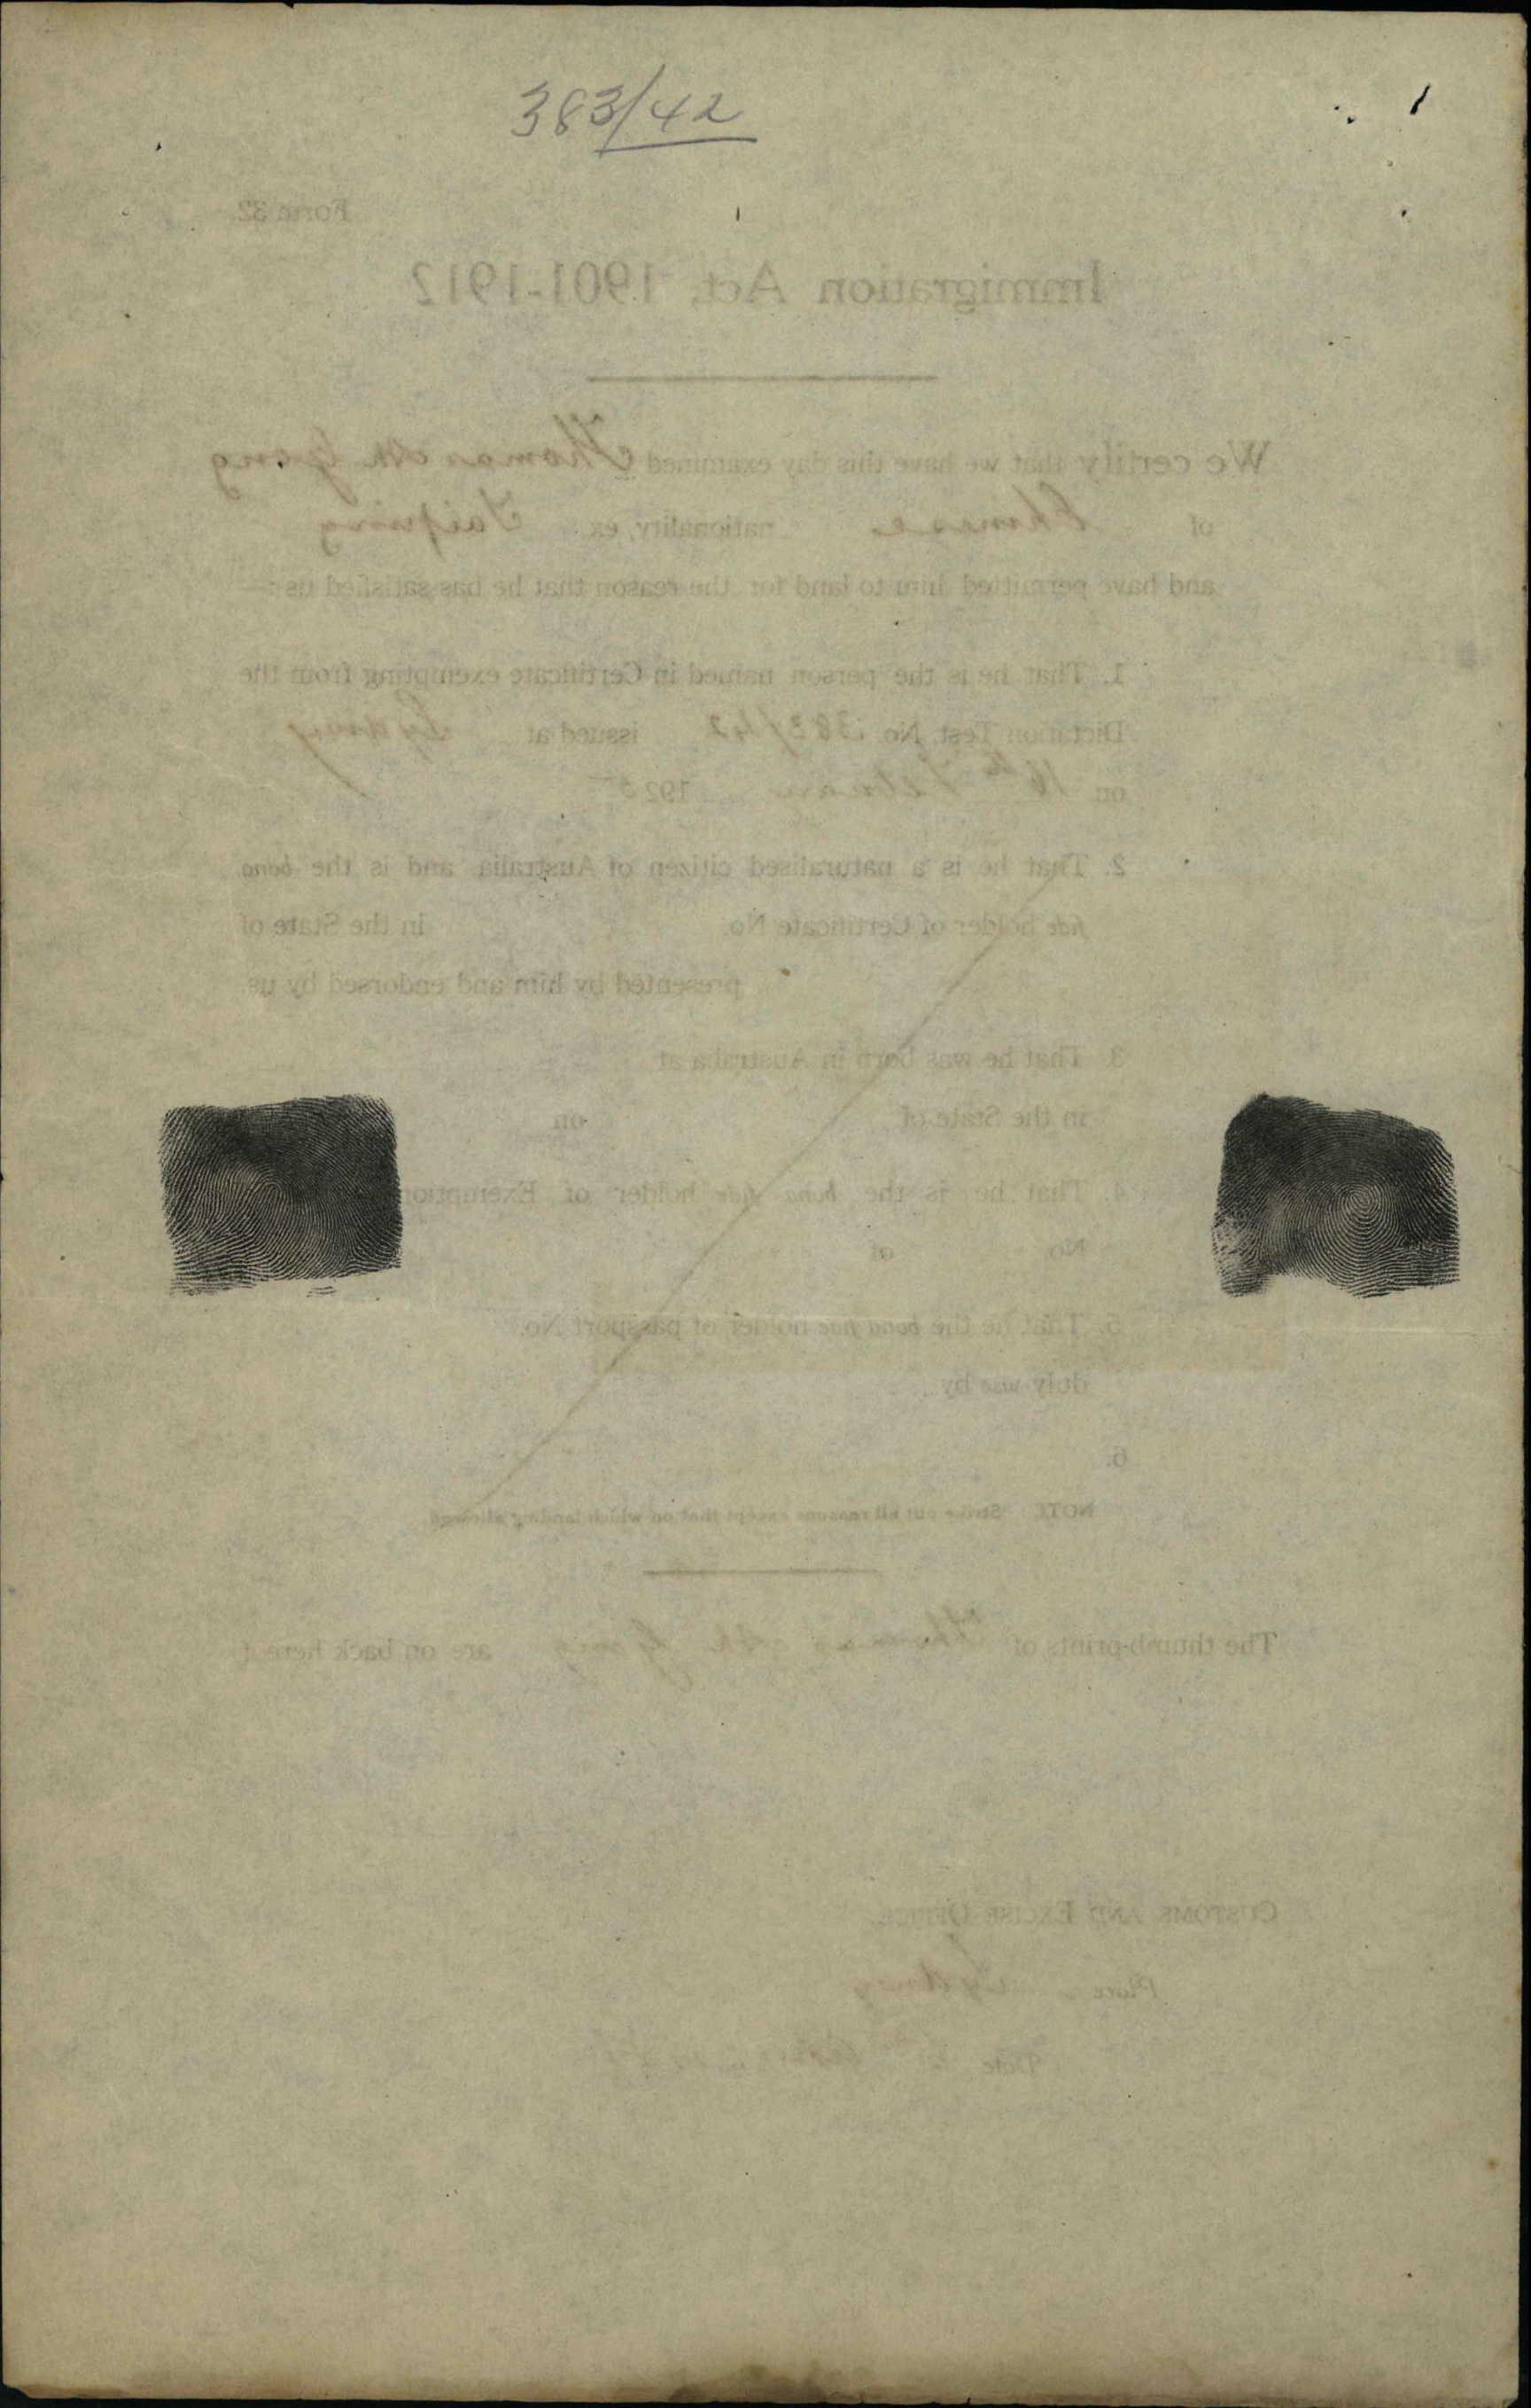 383/42
Form 32.
Immigration Act, 1901-1912
We certify that we have this day examined Thomas Ah
of Chinese nationality, ex. Taiping
and have permitted him to land for the reason that he has satisfied us:—
1. That he is the person named in Certificate exempting from the
Dictation Test No. 383/42 issued at Sydney
on 16th 192
2. That he is a naturalised citizen of Australia and is the bona
fide holder of Certificate No. in the State of
presented by him and endorsed by us.
3. That he was born in Australia at
in the State of on
4. That he is the bona fide holder of Exemption
No. of
5. That he the bona fide holder of passport No.
duly by
6.
NOTE Strike out all reasons except that on which landing allowed
The thumb-prints of Thomas Ah are on back hereof
CUSTOMS AND EXCISE OFFICE,
Place Sydney
Date